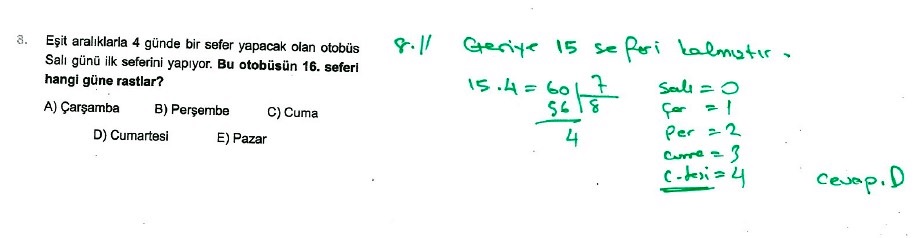 8. Eşit aralıklarla 4 günde bir sefer yapacak olan otobüs
Salı günü ilk seferini yapıyor. Bu otobüsün 16. seferi
hangi güne rastlar?
A) Çarşamba B) Perşembe C) Cuma
D) Cumartesi E) Pazar
8.// Geriye 15 seferi kalmıştır.
15.4 = 60 | 7
56 | 8
4
Salı = 0
Çar = 1
Per = 2
Cuma = 3
C-tesi = 4
Cevap.D